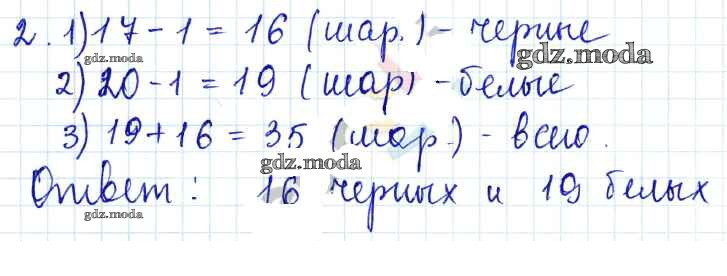 2. 1) 17 - 1 = 16 (шар.) - черные
gdz.moda
gdz.moda
2) 20 - 1 = 19 (шар) - белые
3) 19 + 16 = 35 (шар.) - всего.
gdz.moda
Ответ: 16 черных и 19 белых
gdz.moda